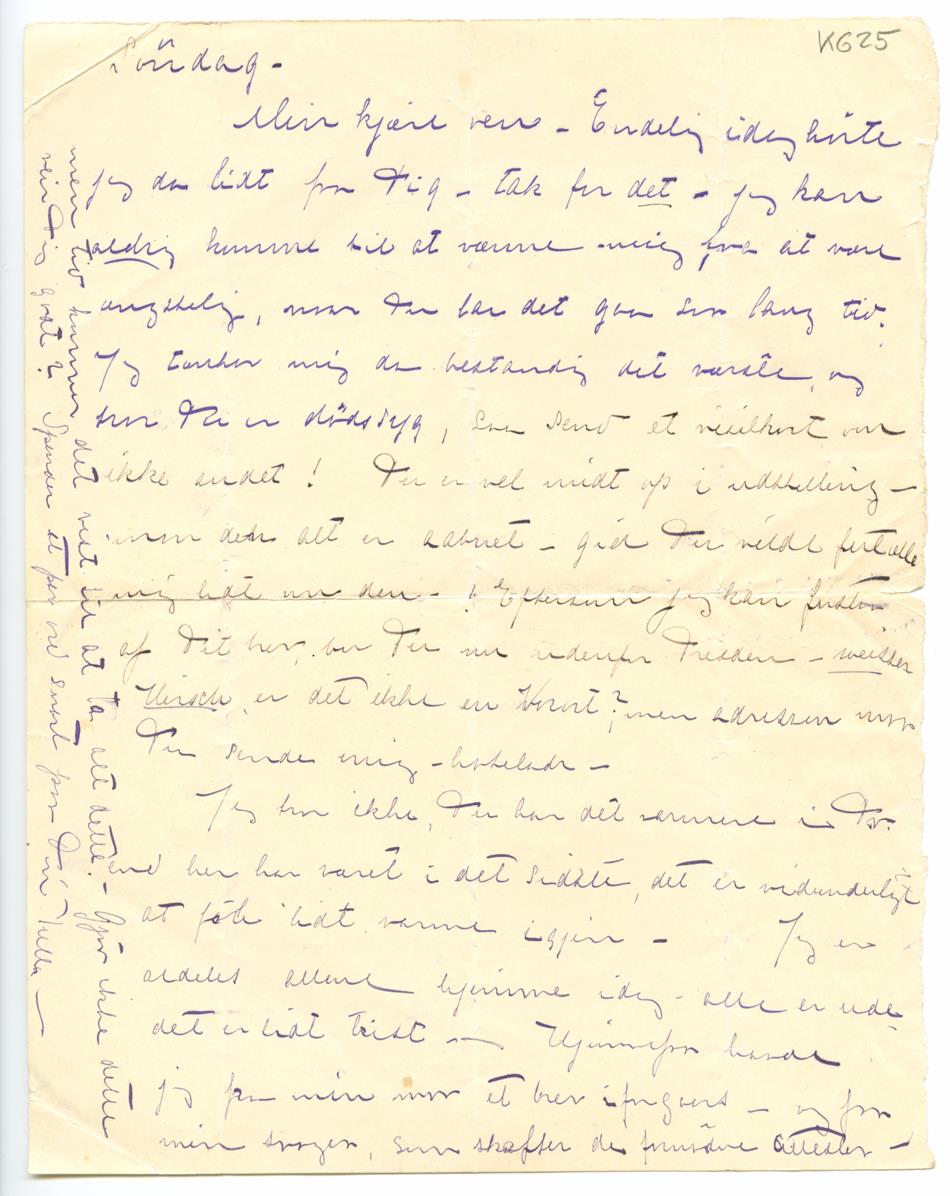 K625
Söndag -
Min kjære ven - Endelig idag hörte
jeg da lidt fra Dig - tak for det - jeg kan
aldrig komme til at vænne mig fra at være
ængstelig, naar Du lar det gaa saa lang tid.
Jeg tænker mig da bestandig det værste, og
tror Du er dödssyg, saa send et visitkort om
ikke andet! Du er vel midt op i udstilling -
men den alt er aabnet - gid Du vilde fortælle
mig lidt om den - Eftersom jeg kan forstaa
af Dit brev, bor Du nu udenfor Dresden - weisser
Hirsch, er det ikke en Kurort? men adressen maa
Du sende mig - hotelads -
Jeg tror ikke, Du har det varmere i Dr.
end her har været i det sidste, det er vidunderligt
at föle lidt varme igjen - Jeg er
aldeles allene hjemme idag - alle er ude
det er lidt trist - Hjemmefra havde
jeg fra min mor et brev iforgaars - og fra
min svoger, som skaffer de fornödne attester -
men tid kommer det vist til at ta alt dette. - Gjör ikke dette
Dig godt? Spender et par ord snart paa Din Tulla -